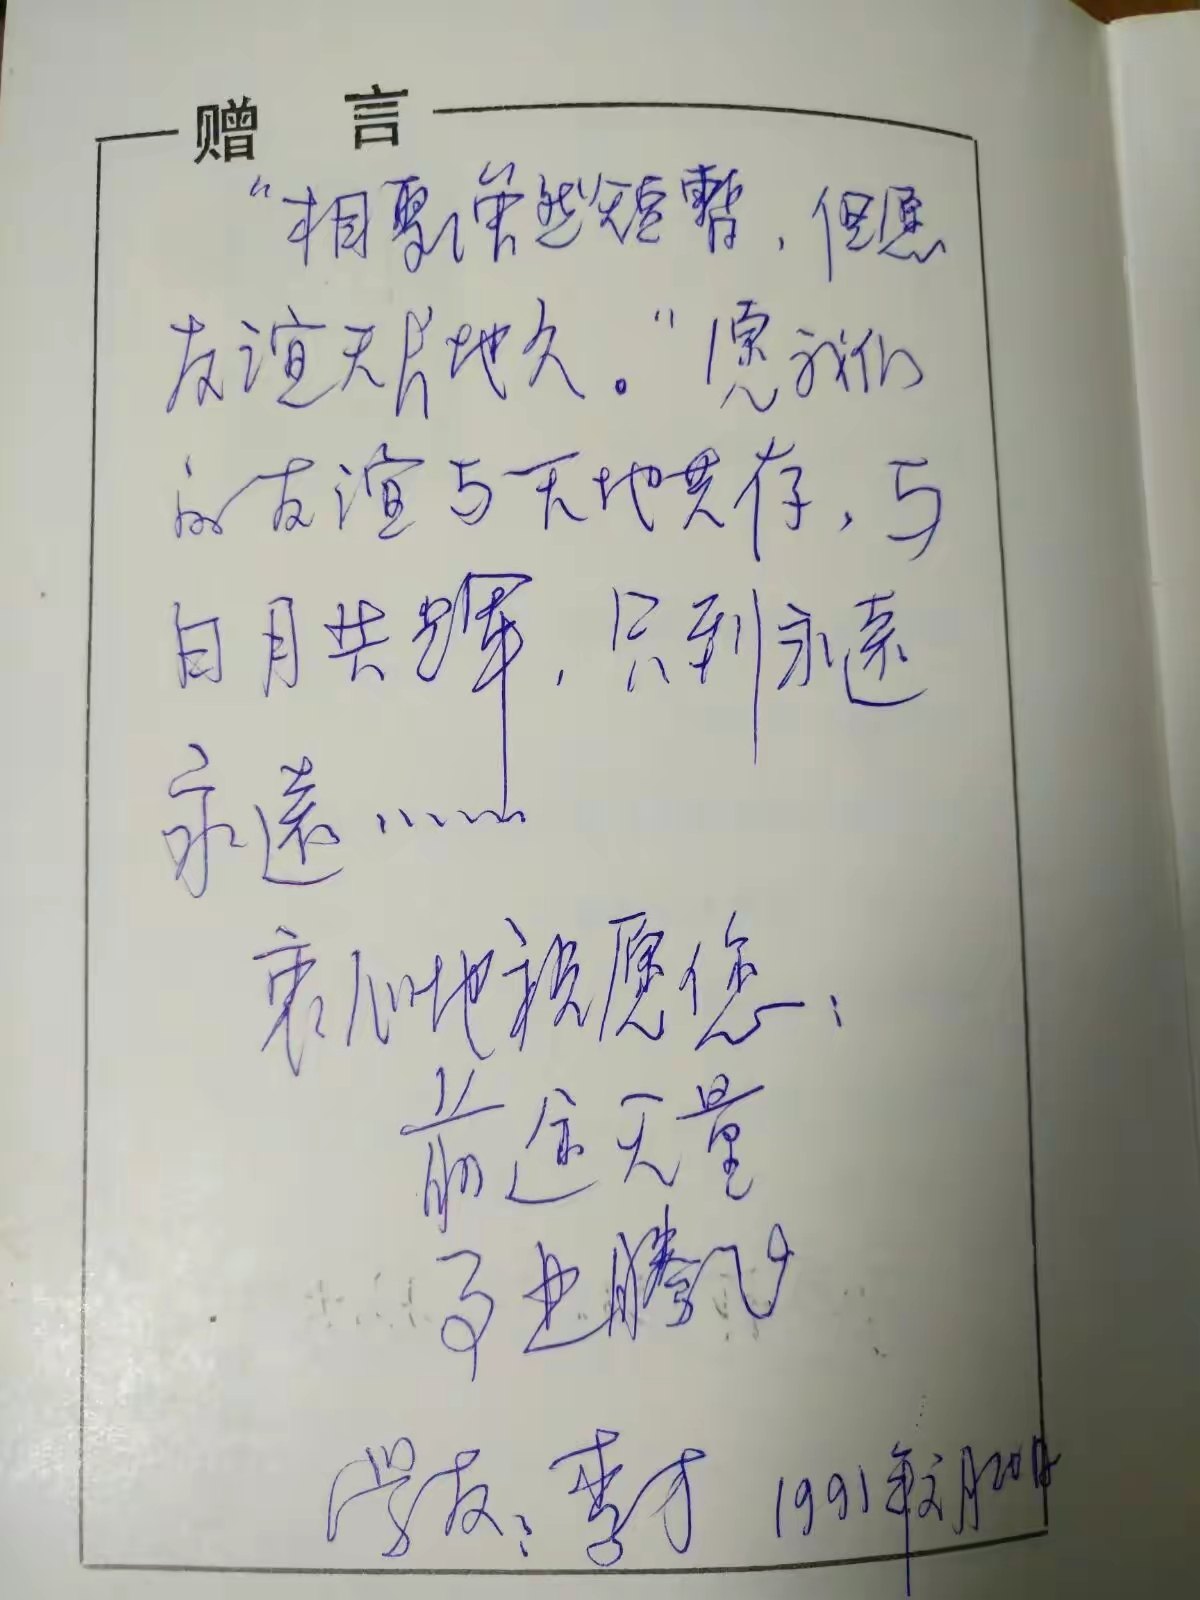 赠言
“相聚虽然短暂，但愿
友谊天长地久。”愿我们
的友谊与天地共存，与
日月共辉，只到永远
永远……
衷心地祝愿您：
前途无量
事业腾飞
学友：李才 1991年 月20日